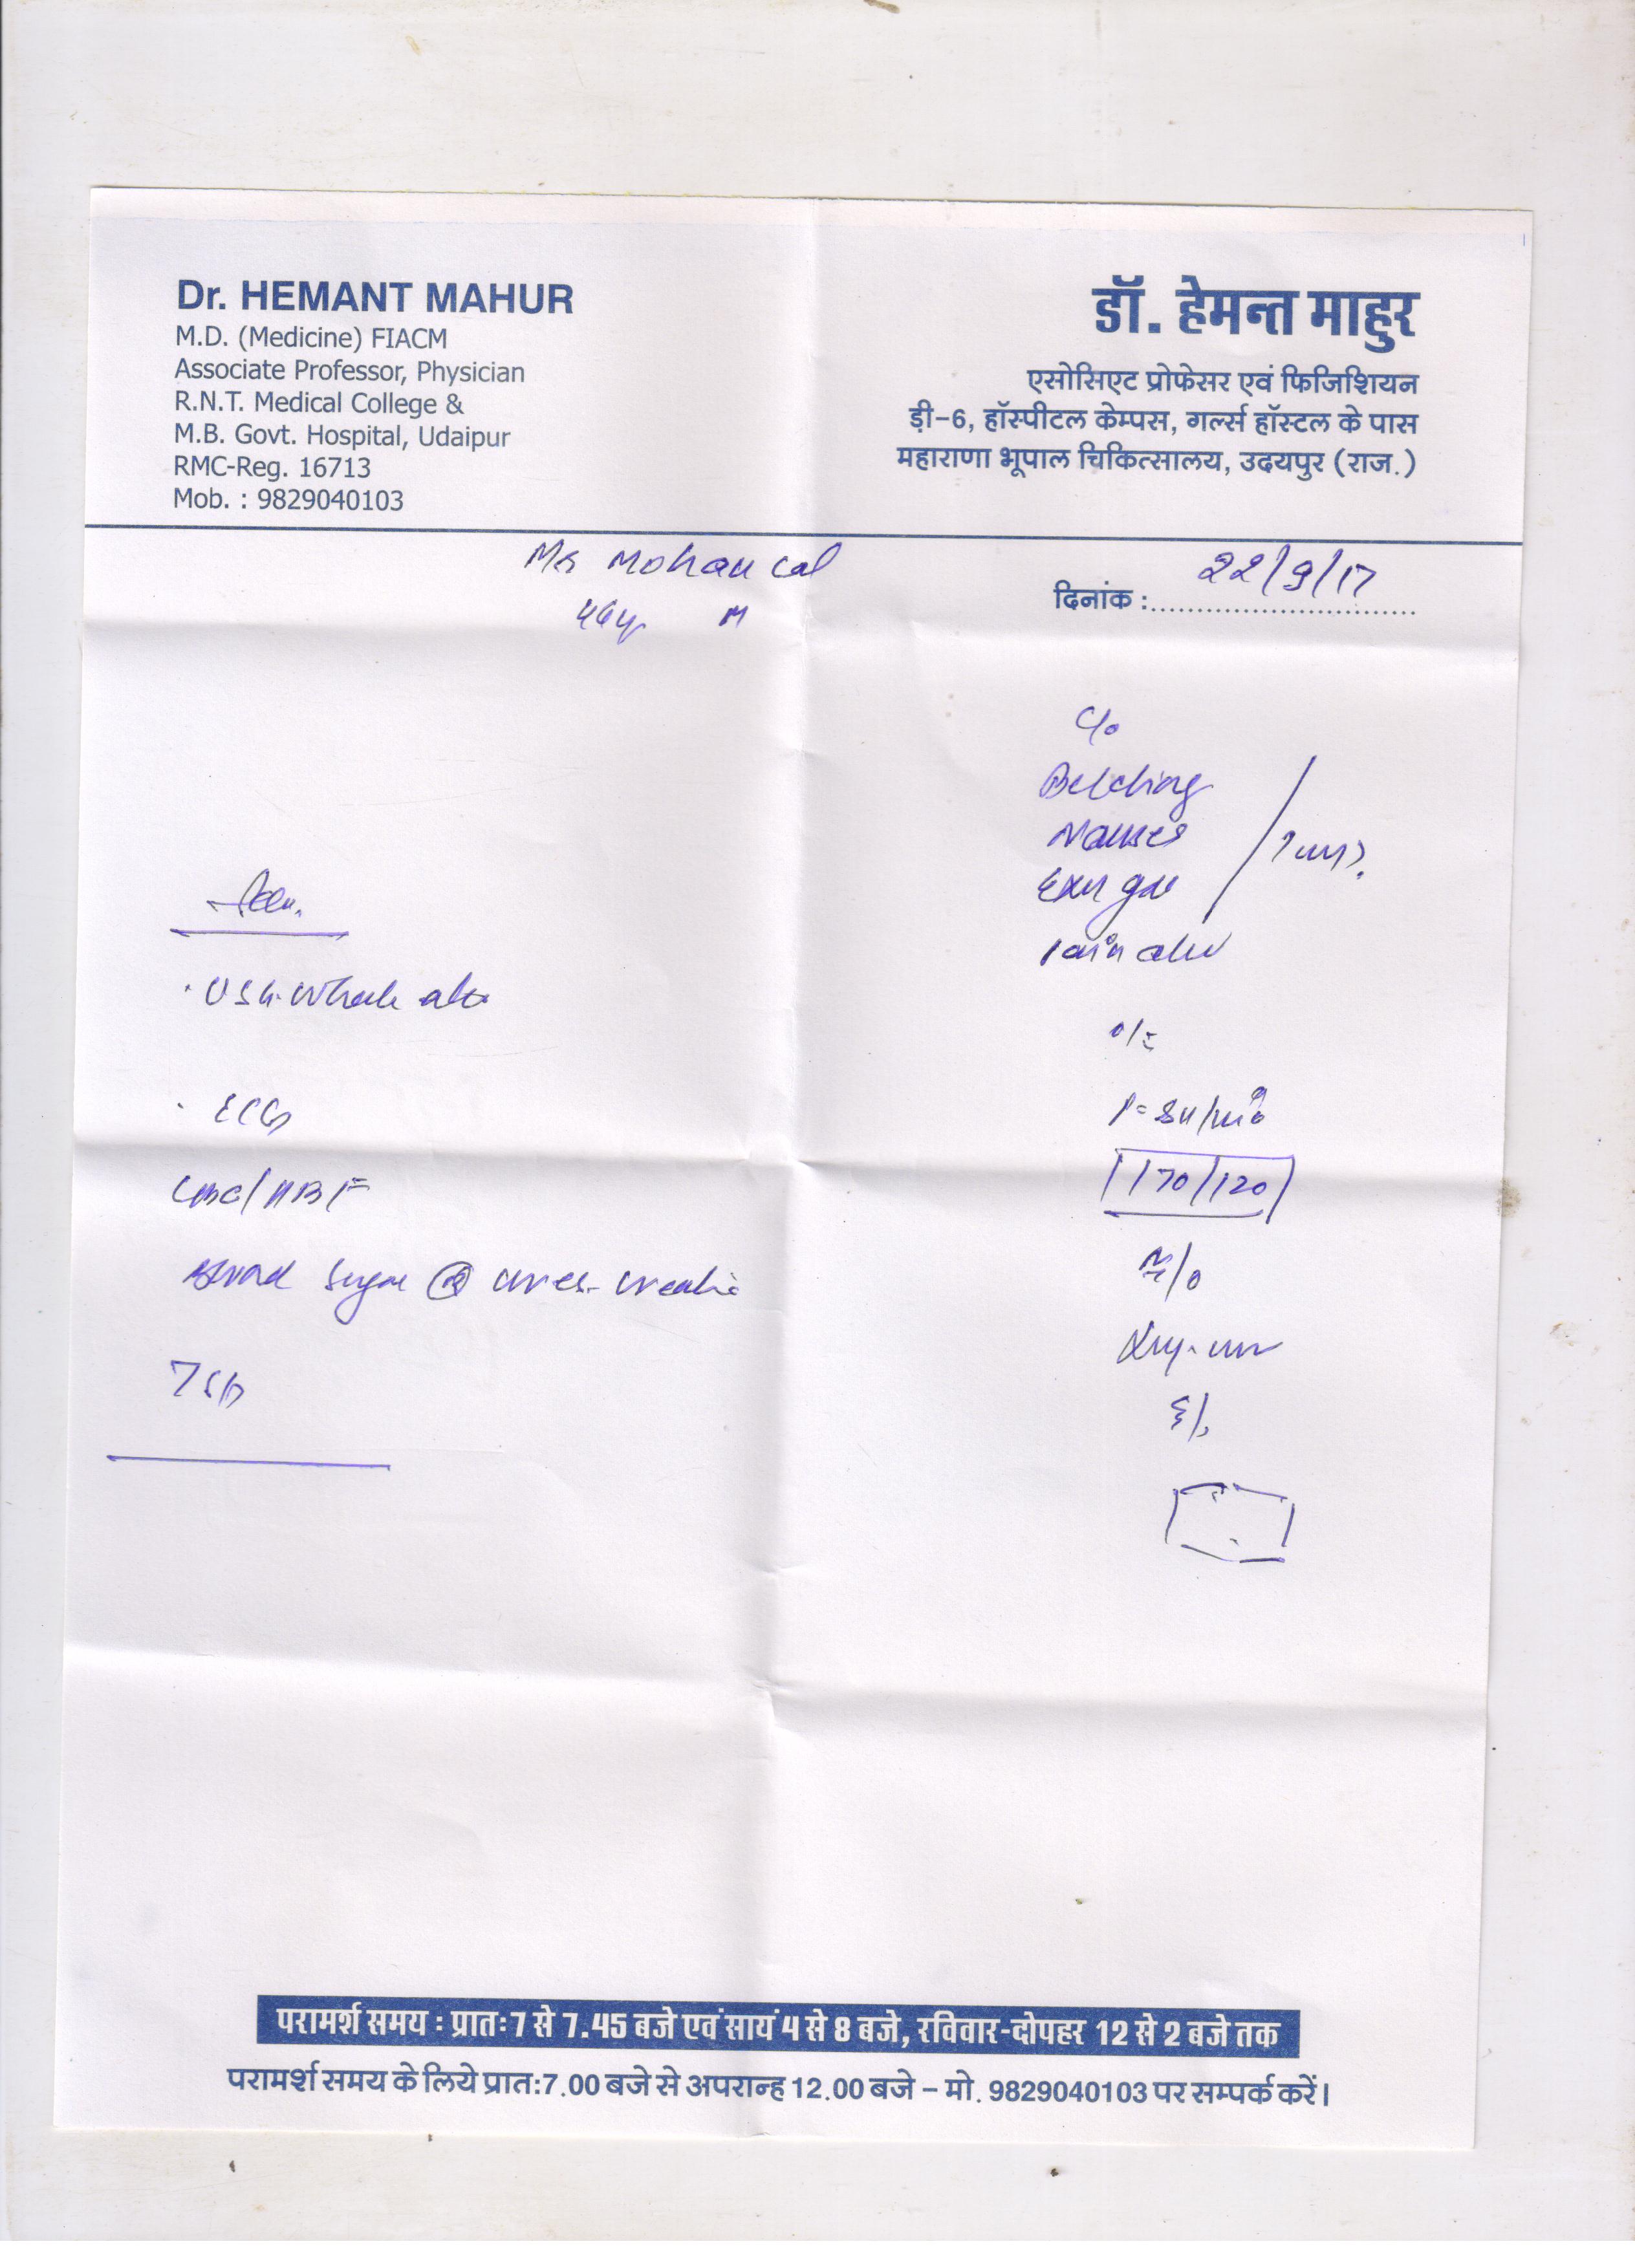 Dr. HEMANT MAHUR
M.D. (Medicine) FIACM
Associate Professor, Physician
R.N.T. Medical College &
M.B. Govt. Hospital, Udaipur
RMC-Reg. 16713
Mob. : 9829040103
डॉ. हेमन्त माहुर
एसोसिएट प्रोफेसर एवं फिजिशियन
ड़ी-6, हॉस्पीटल केम्पस, गर्ल्स हॉस्टल के पास
महाराणा भूपाल चिकित्सालय, उदयपुर (राज.)
Mr Mohan Lal
M
दिनांक : 22/9/17
C/o
Belching
Nausea
Pain abd
O/E
170/120
USG. Whole abd
ECG
CBC/
Blood Sugar
परामर्श समय : प्रातः 7 से 7.45 बजे एवं सायं 4 से 8 बजे, रविवार-दोपहर 12 से 2 बजे तक
परामर्श समय के लिये प्रातः 7.00 बजे से अपरान्ह 12.00 बजे – मो. 9829040103 पर सम्पर्क करें।